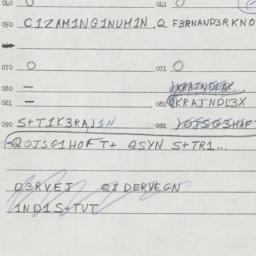 040 041
050 C1ZAM1NG1NUM1N .Q F3RNAND3RKNO
070 O 071 O
080 —
081 — 082 QKRAJNDL3X
090 S+T1K3RAJ1N 091
-QOJSG1HOF T+ QSYN S+TR1...
D3RVEJ Q1DERVEGN
1ND1S+TUT